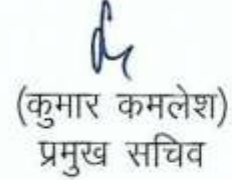 (कुमार कमलेश)
प्रमुख सचिव